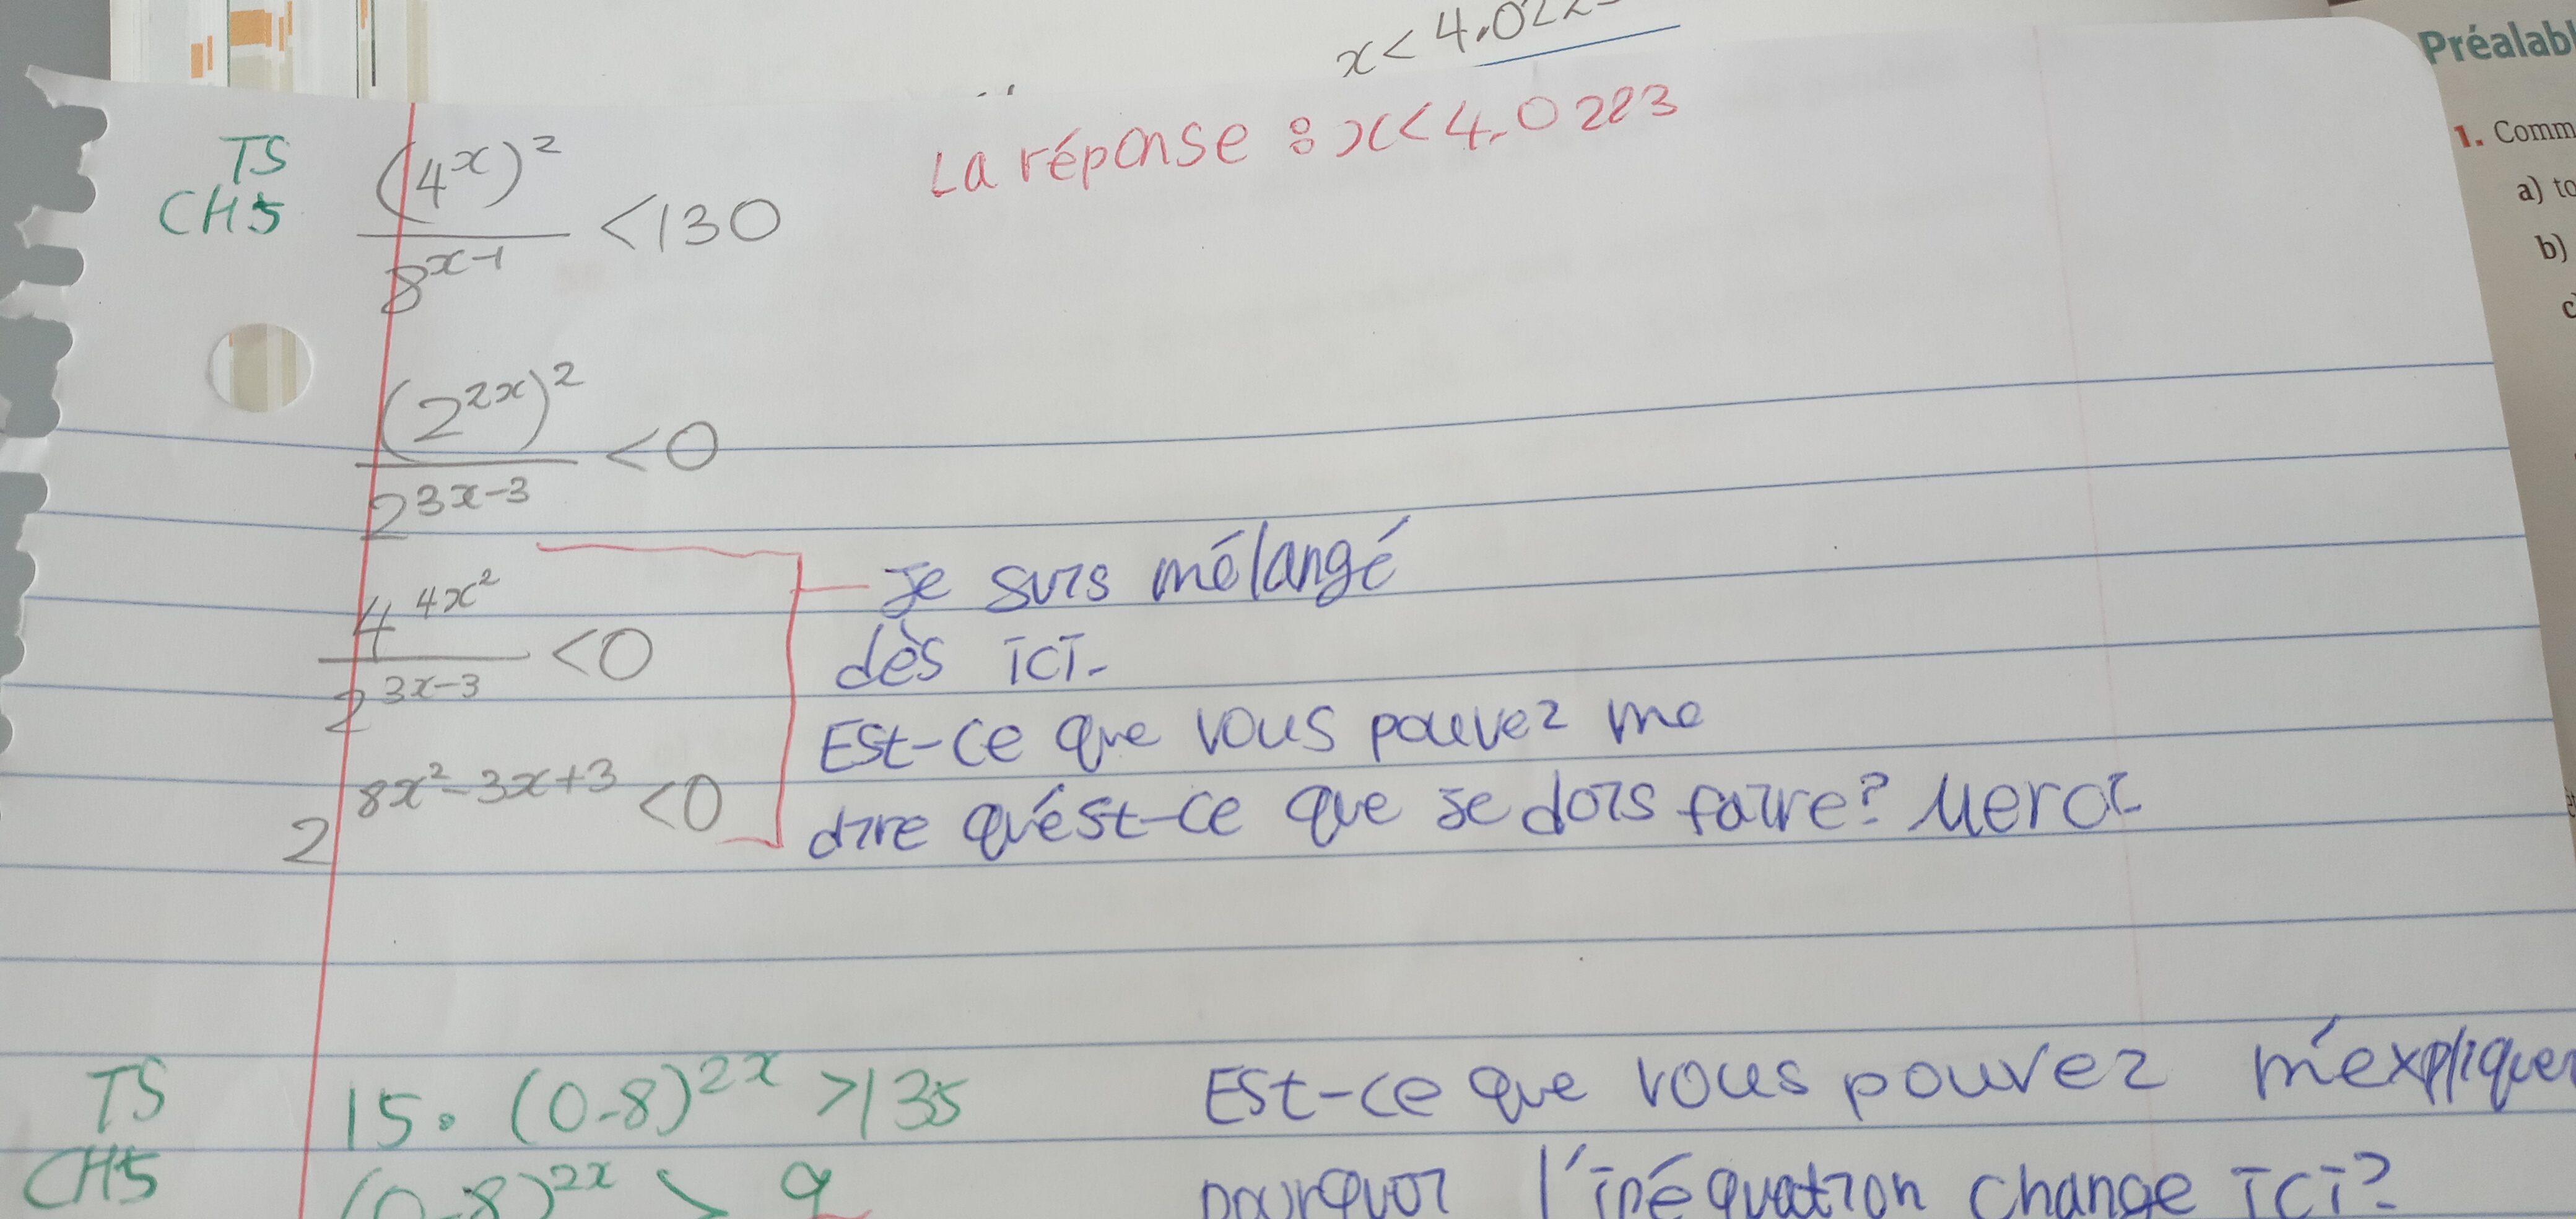 x < 4,022
Préalabl
La réponse : x < 4,0223
1. Comm
a) to
b)
c)
TS
CH5
(4^x)^2 / 8^(x-1) < 130
(2^(2x))^2 / 2^(3x-3) < 0
4^(4x^2) / 2^(3x-3) < 0
2^(8x^2-3x+3) < 0
Je suis mélangé
dès ici.
Est-ce que vous pouvez me
dire qu'est-ce que je dois faire? Merci
TS
CH5
15 · (0.8)^(2x) > 135
(0.8)^(2x) > 9
Est-ce que vous pouvez m'expliquer
pourquoi l'inéquation change ici?